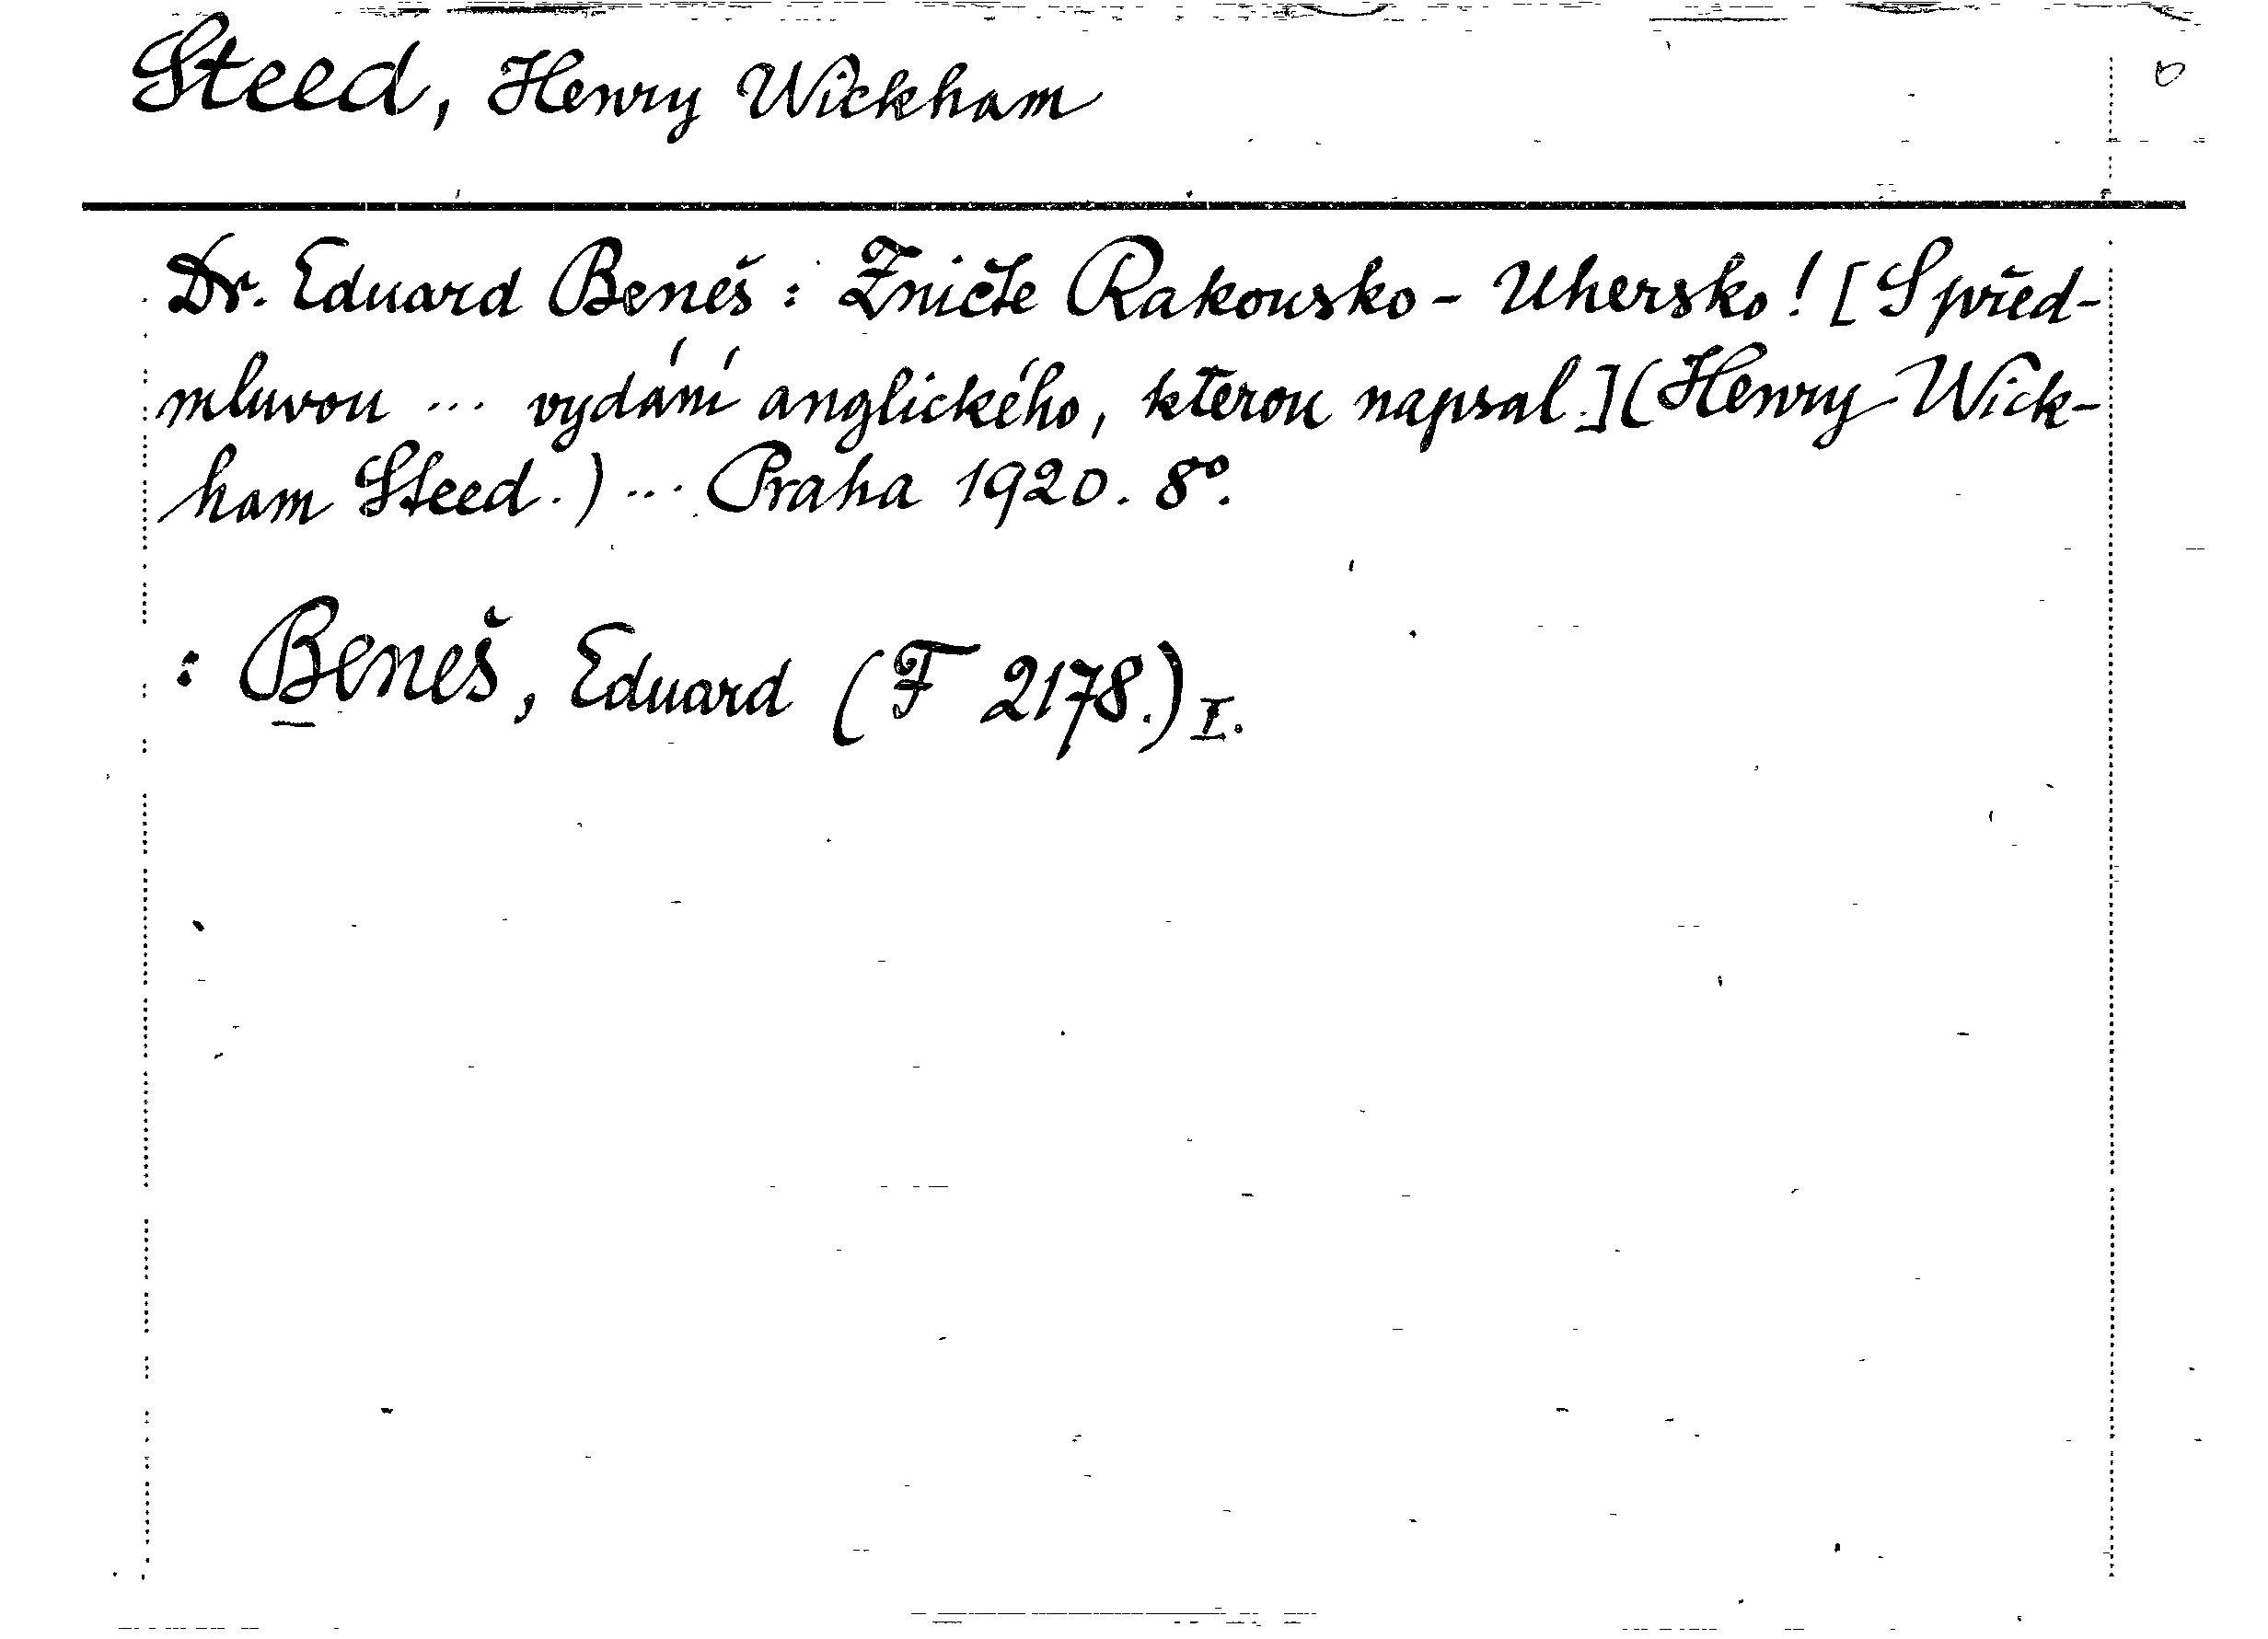 Steed, Henry Wickham
Dr. Eduard Beneš: Zničte Rakousko-Uhersko! [S před-
mluvou ... vydání anglického, kterou napsal.] (Henry Wick-
ham Steed.) ... Praha 1920. 8°.
: Beneš, Eduard (F 2178.) I.